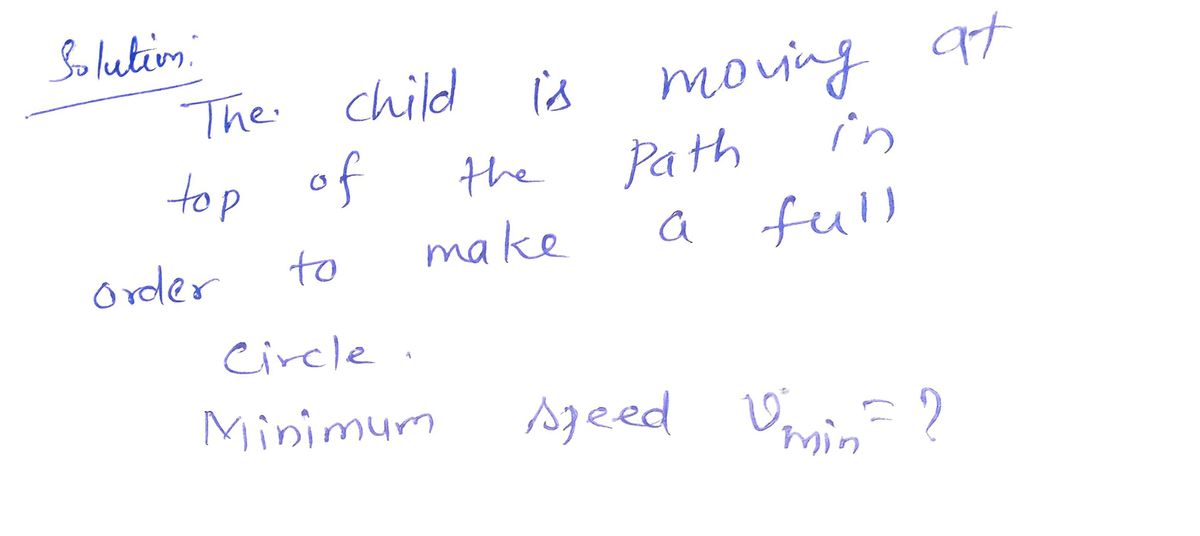 Solution:
The child is moving at
top of the path in
order to make a full
circle.
Minimum speed v_min = ?